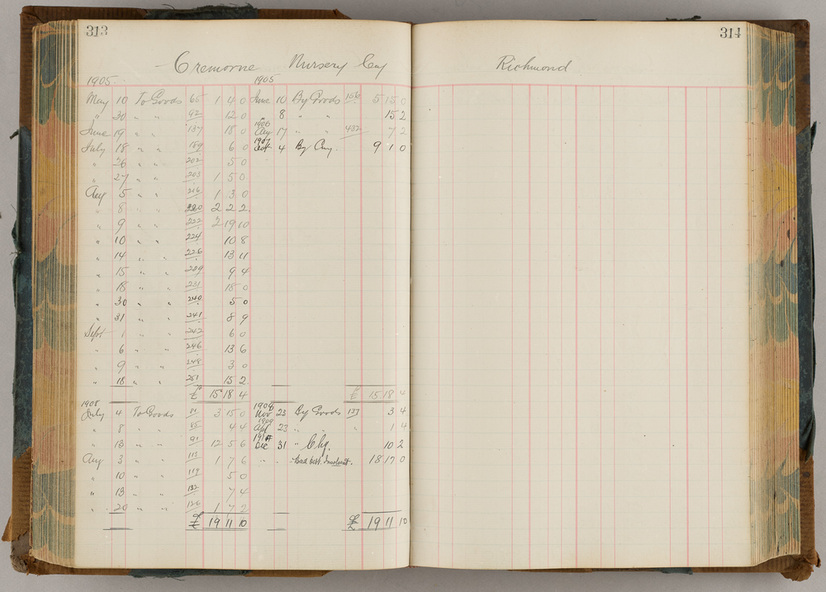 313
314
Cremorne Nursery Coy Richmond
1905 1905
May 10 To Goods 65 1 4 0 June 10 By Goods 156 5 15 0
" 30 " " 92 12 0 " 8 " " 15 2
June 19 " " 137 18 0 1906 Aug 17 " " 432 7 2
July 18 " " 189 6 0 1907 4 By 9 1 0
" 26 " " 202 5 0
" 27 " " 203 1 5 0
Aug 5 " " 216 1 3 0
" 8 " " 220 2 2 2
" 9 " " 222 2 19 10
" 10 " " 224 10 8
" 14 " " 226 13 11
" 15 " " 229 9 4
" 18 " " 231 15 0
" 30 " " 240 5 0
" 31 " " 241 8 9
Sept 1 " " 242 6 0
" 6 " " 246 13 6
" 9 " " 248 3 0
" 18 " " 253 15 2
£ 15 18 4 £ 15 18 4
1908 1908
July 4 To Goods 3 15 0 Nov 23 By Goods 133 3 4
" 8 " " 4 4 1909 23 " " 1 4
" 13 " " 12 5 6 Dec 31 " Chq. 10 2
Aug 3 " " 1 7 6 " " 18 17 0
" 10 " " 119 5 0
" 13 " " 7 4
" 20 " " 126 1 7 2
£ 19 11 10 £ 19 11 10